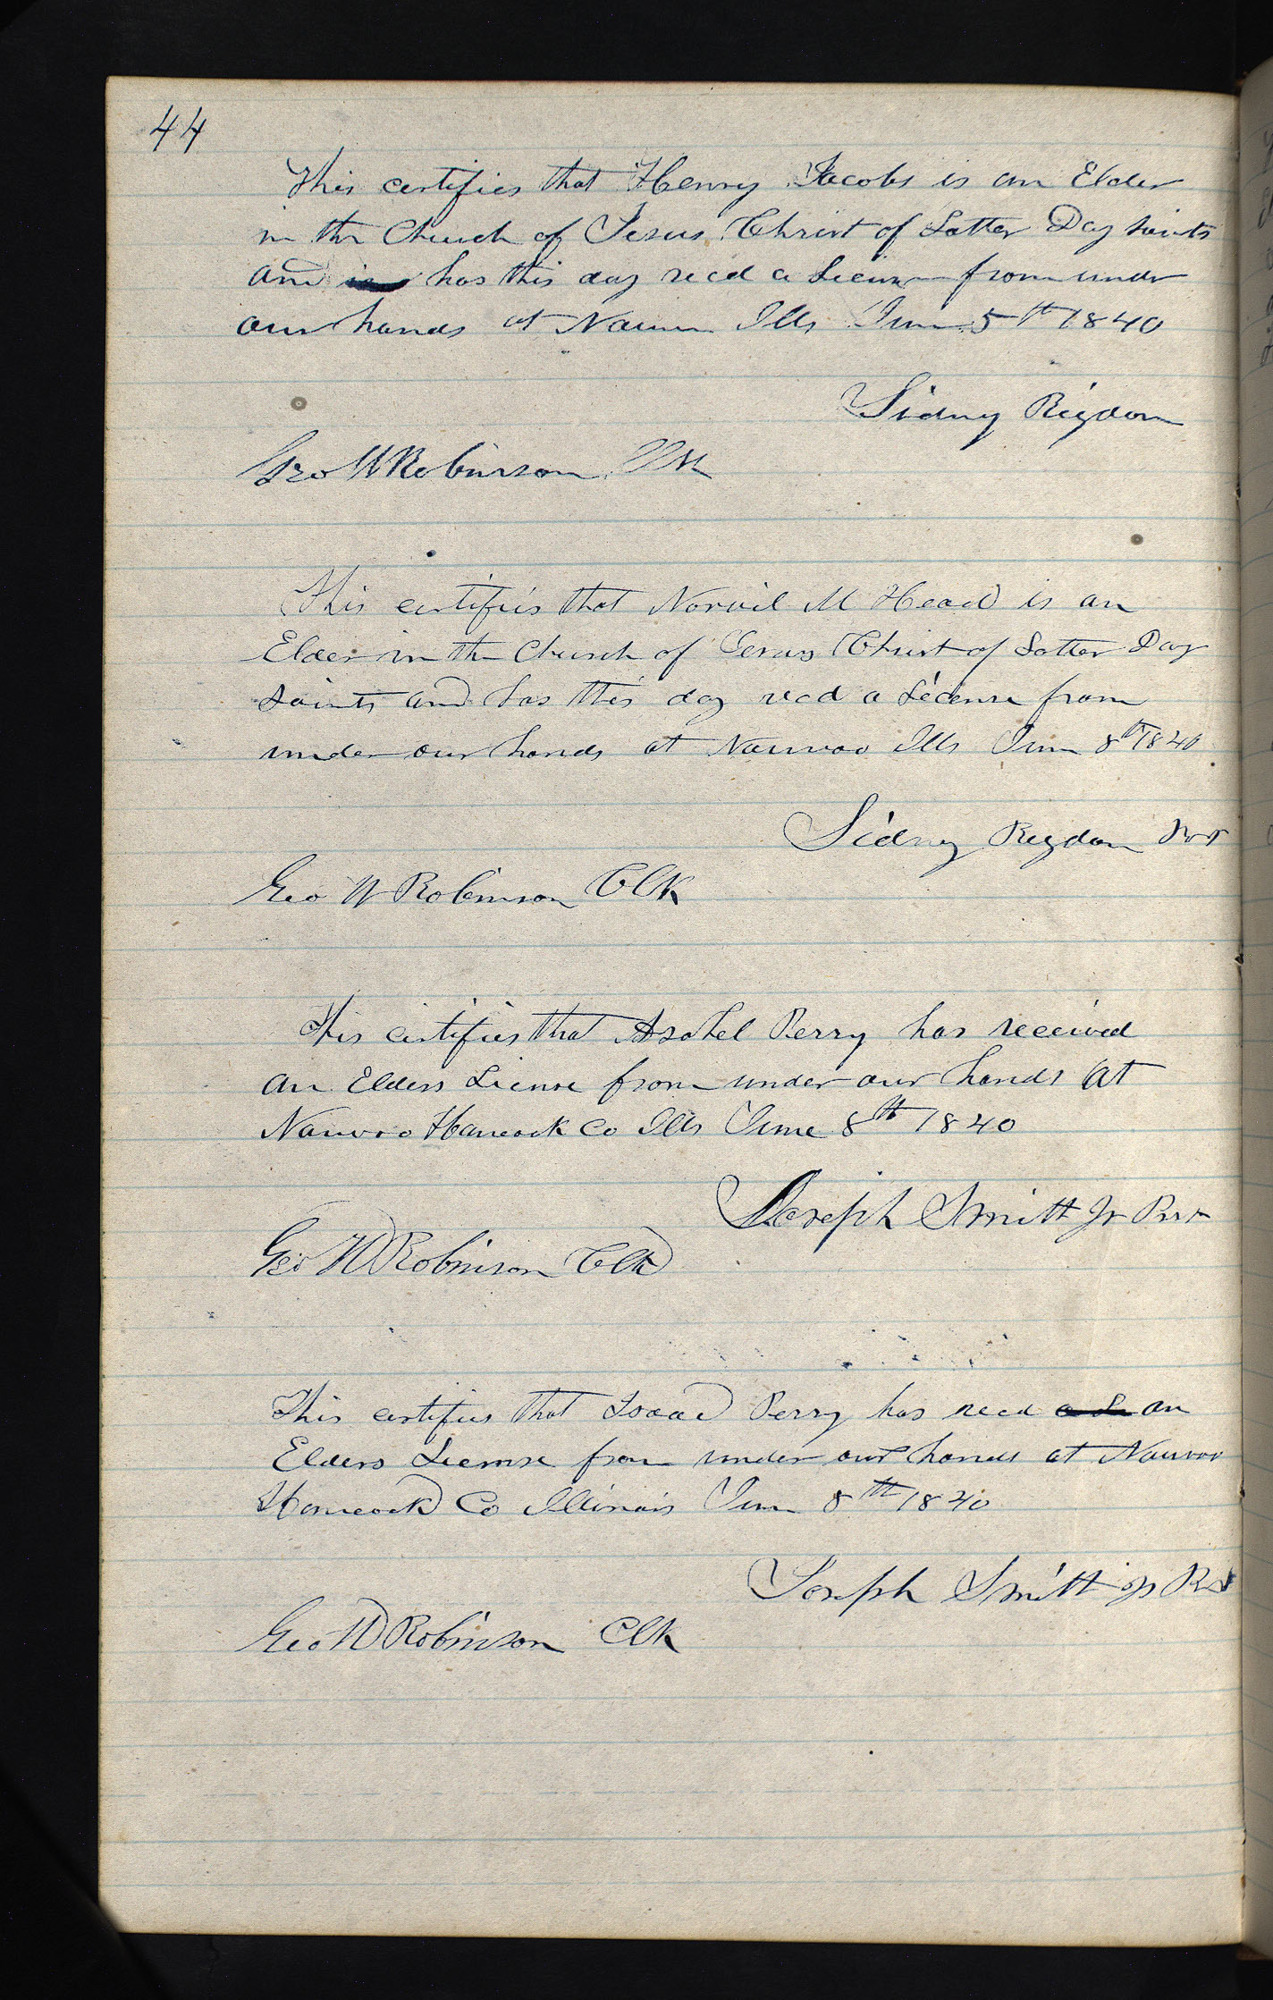 44
This certifies that Henry Jacobs is an Elder
in the Church of Jesus Christ of Latter Day saints
and is has this day recd a License from under
our hands at Nauvoo Ills June 5th 1840
Sidney Rigdon
Geo W Robinson Clk
This certifies that Norvil M Head is an
Elder in the Church of Jesus Christ of Latter Day
saints and has this day recd a License from
under our hands at Nauvoo Ills June 8th 1840
Sidney Rigdon Prst
Geo W Robinson Clk
This certifies that Asahel Perry has received
an Elders License from under our hands at
Nauvoo Hancock Co Ills June 8th 1840
Joseph Smith Jr Prst
Geo W Robinson Clk
This certifies that Isaac Perry has recd a Li an
Elders License from under our hands at Nauvoo
Hancock Co Illinois June 8th 1840
Joseph Smith Jr Prst
Geo W Robinson Clk